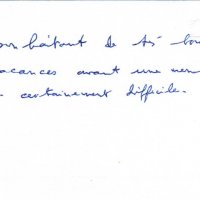 souhaitant de très bo
acances avant une ren
certainement difficile.